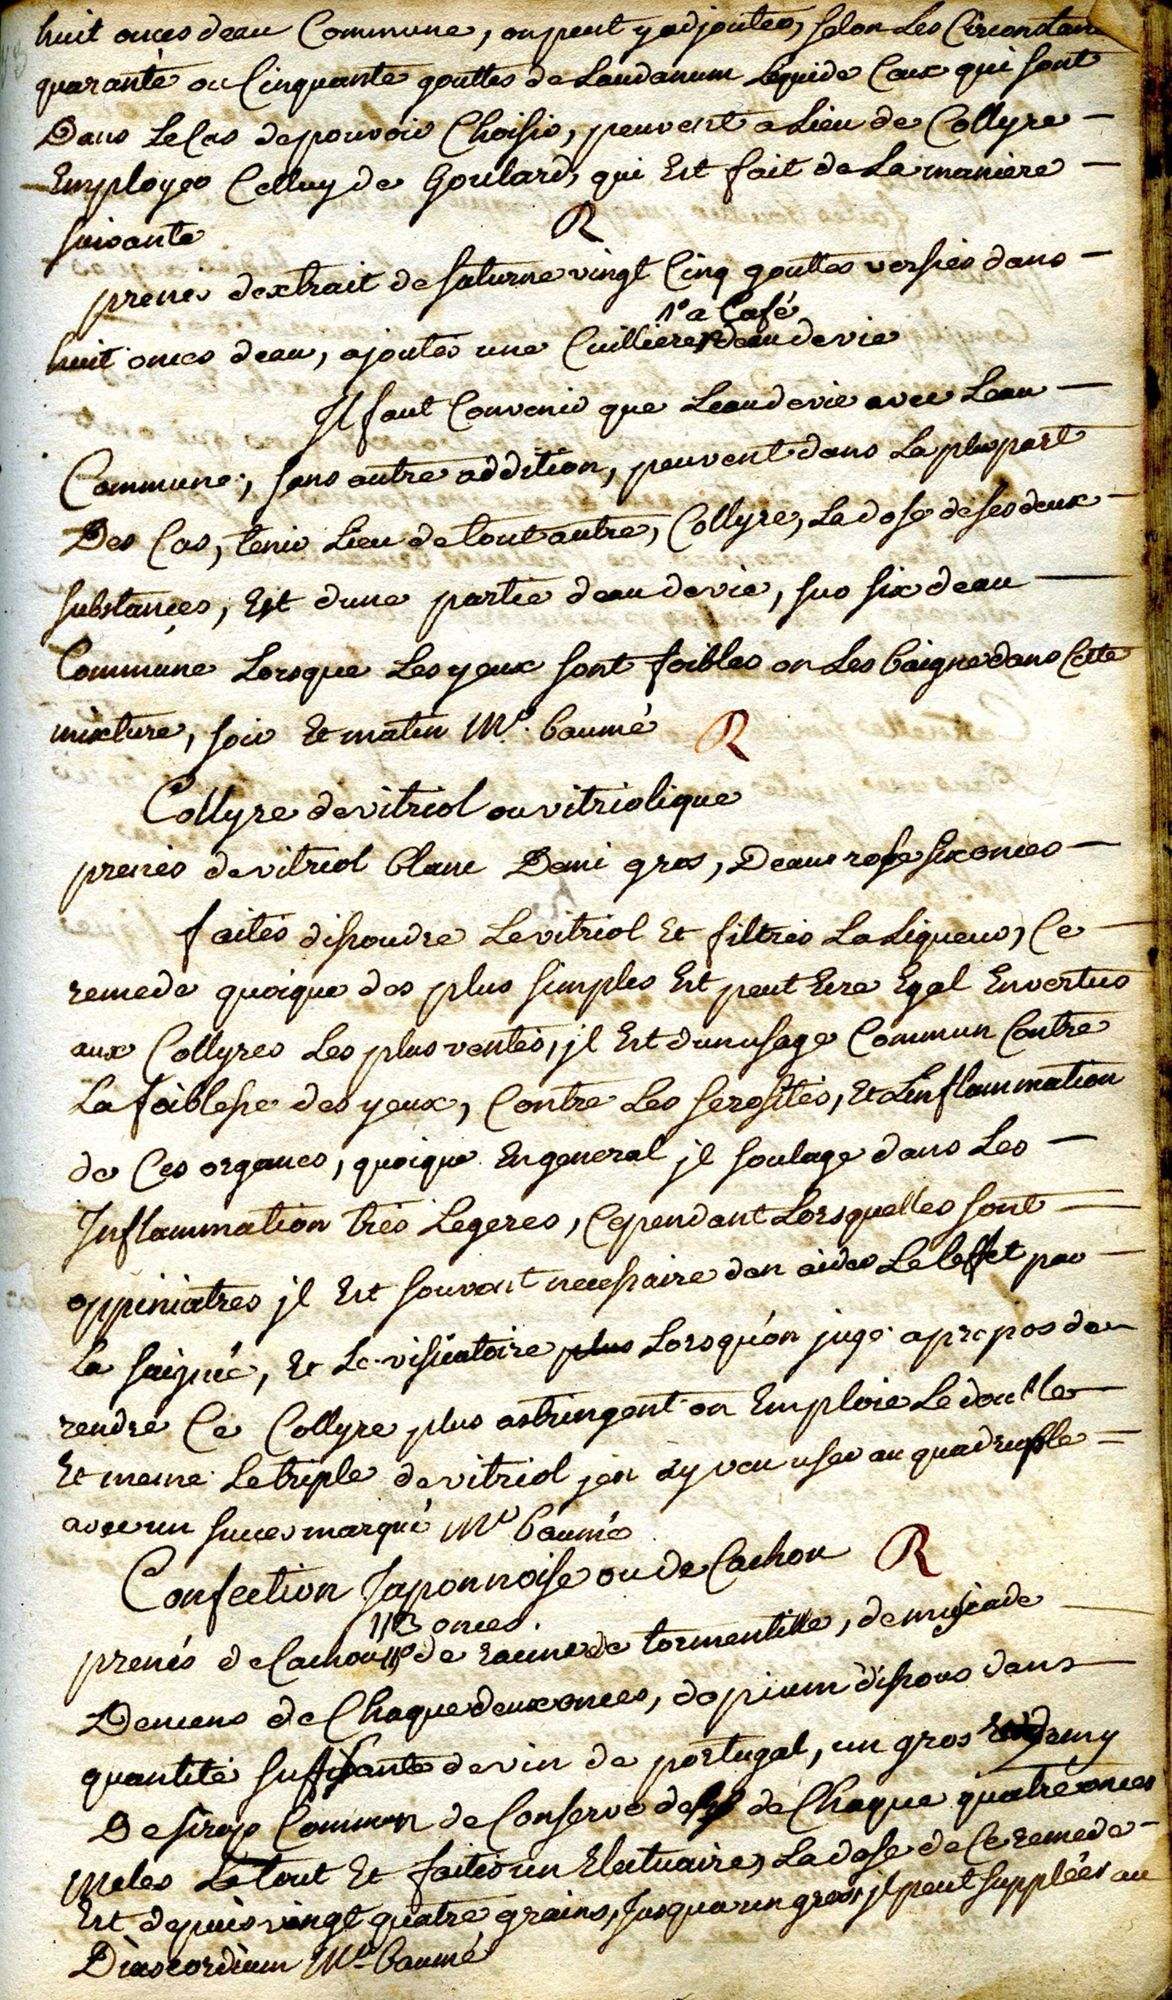 huit onces deau Commune, on peut y adjouter, selon Les Circonstan
quarante ou Cinquante gouttes de Laudanum Liquide Ceux qui sont
Dans Le Cas de pouvoir Choisir, peuvent a Lieu de Collyre
Employer Celluy de Goulard, qui Est fait de La maniere
suivante
R
prenes dextrait de saturne vingt Cinq gouttes versées dans
1e a Café
huit onces deau, ajoutes une Cuilliere deau de vie
Il faut Convenir que Leau de vie avec Leau
Commune, sans autre addition, peuvent dans La pluspart
Des Cas, tenir Lieu de tout autre, Collyre, La dose de ses deux
substances, Est dune partie deau de vie, sur six deau
Commune Lorsque Les yeux sont foibles on Les baigne dans Cette
mixture, soir Et matin Mr. baumé R
Collyre de vitriol ou vitriolique
prenés de vitriol blanc Demi gros, Deau rose six onces
faites dissoudre Le vitriol Et filtrés La Liqueur, Ce
remede quoique des plus simples Est peut Etre Egal En vertus
aux Collyres Les plus ventés, jl Est dun usage Commun Contre
La foiblesse des yeux, Contre Les serosités, Et Linflammation
de Ces organes, quoique En general jl soulage dans Les
Inflammation trés Legeres, Cependant Lorsquelles sont
oppiniatres jl Est souvent necessaire den aider Le Leffet par
La saignée, Et Le visicatoire plus Lorsqu'on juge apropos de
rendre Ce Collyre plus astringent on Emploie Le double
Et meme Le triple de vitriol jen ay vu user au quadruple
avec un succes marqué Mr baumé
Confection Japonnoise ou de Cachou R
113 onces
prenés de Cachou de racine de tormentille, de muscade
Dencens de Chaque deux onces, dopium dissous dans
quantité suffisante de vin de portugal, un gros Et demy
De sirop Commun de Conserve de de Chaque quatre onces
Meles Le tout Et faites un Electuaire, La dose de Ce remede
Est depuis vingt quatre grains, Jusqua un gros, jl peut suppléer au
Diascordium Mr baumé